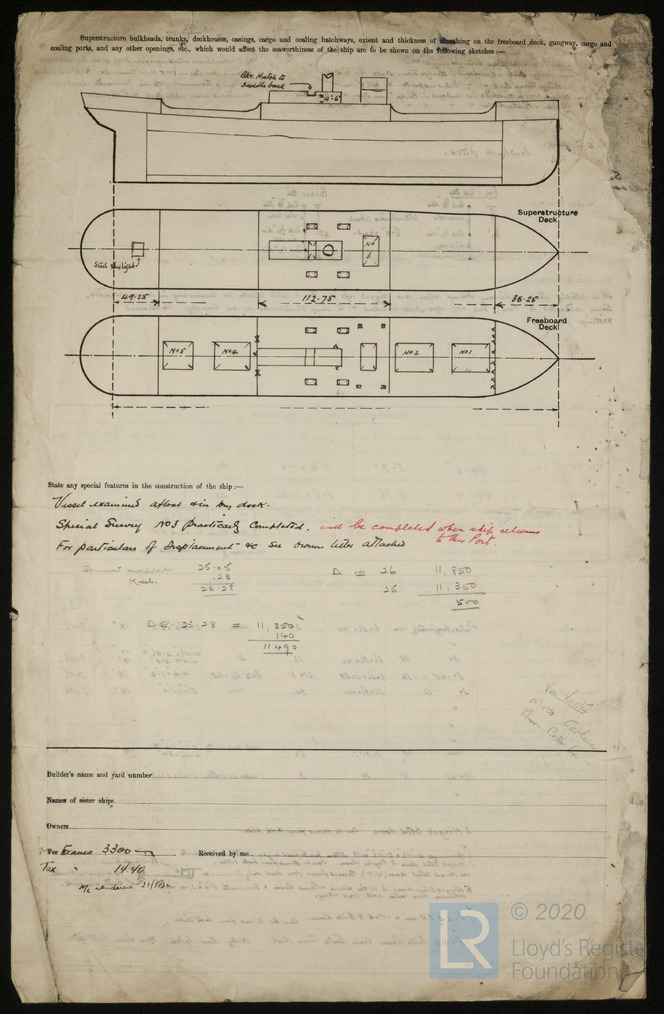 Superstructure bulkheads, trunks, deckhouses, casings, cargo and coaling hatchways, extent and thickness of sheathing on the freeboard deck, gangway, cargo and
coaling ports, and any other openings, etc., which would affect the seaworthiness of the ship are to be shewn on the following sketches :—
Bkr. Hatch to
Saddle back
4'-6"
Superstructure
Deck
No 3
Steel Skylight
49.25
112.75
38.25
Freeboard
Deck
No 5
No 4
No 2
No 1
State any special features in the construction of the ship :—
Vessel examined afloat & in dry dock.
Special Survey No 3 practically completed. will be completed when ship returns
to this Port.
For particulars of Displacement &c see owners letter attached
25.05
Keel
.23
25.28
Δ = 26 11,850
25 11,350
500
25.28 = 11,350
140
11490
Builder's name and yard number
Names of sister ships
Owners
Fee Francs 3300
Received by me
Tax " 14.40
© 2020
LR
Lloyd's Register
Foundation